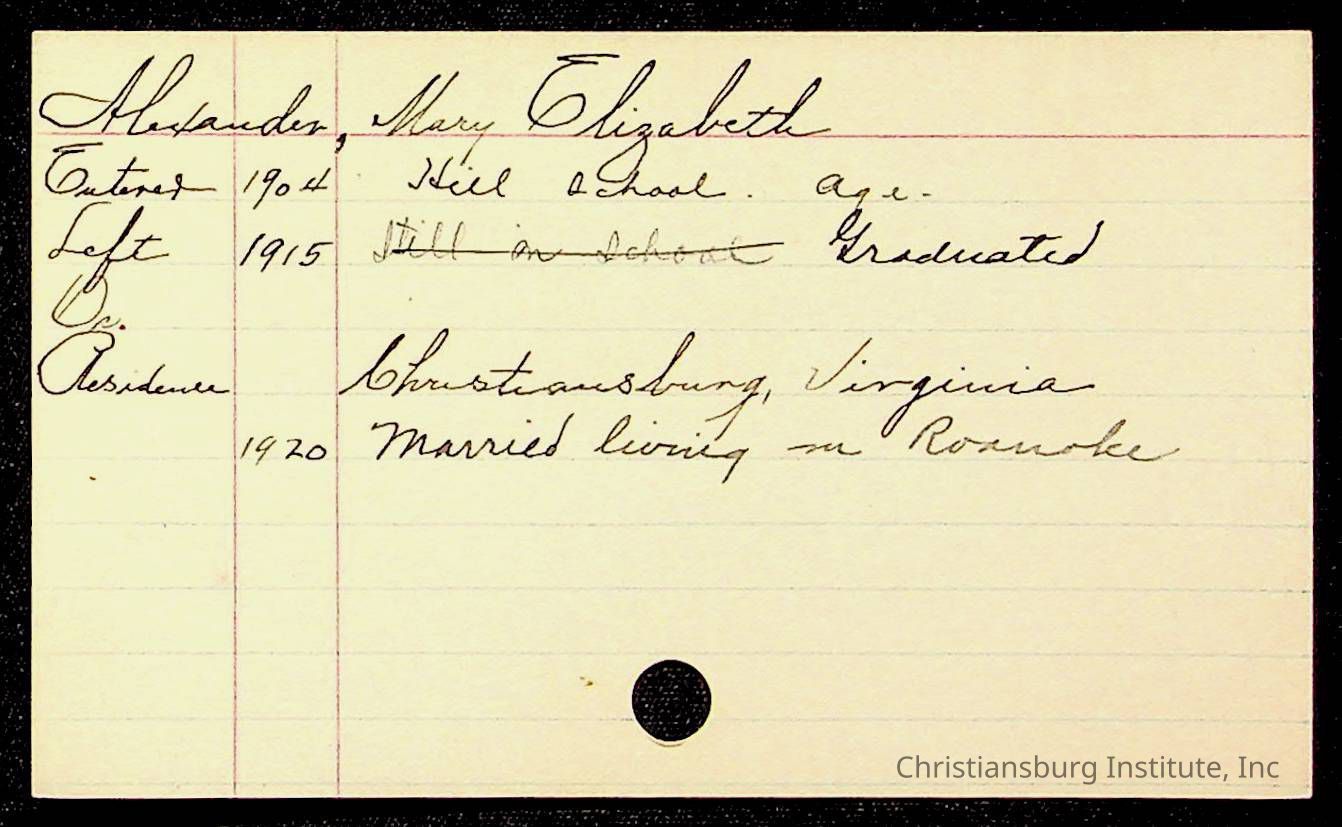 Alexander, Mary Elizabeth
Entered 1904 Hill School. Age.
Left 1915 Still in School Graduated
Oc.
Residence Christiansburg, Virginia
1920 Married living in Roanoke
Christiansburg Institute, Inc